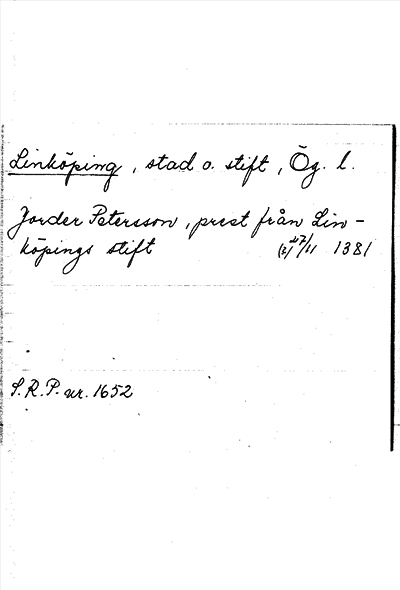 Linköping, stad o. stift, Ög. l.
Jorder Petersson, prest från Lin-
köpings stift 27/11 1381
S.R.P. nr. 1652